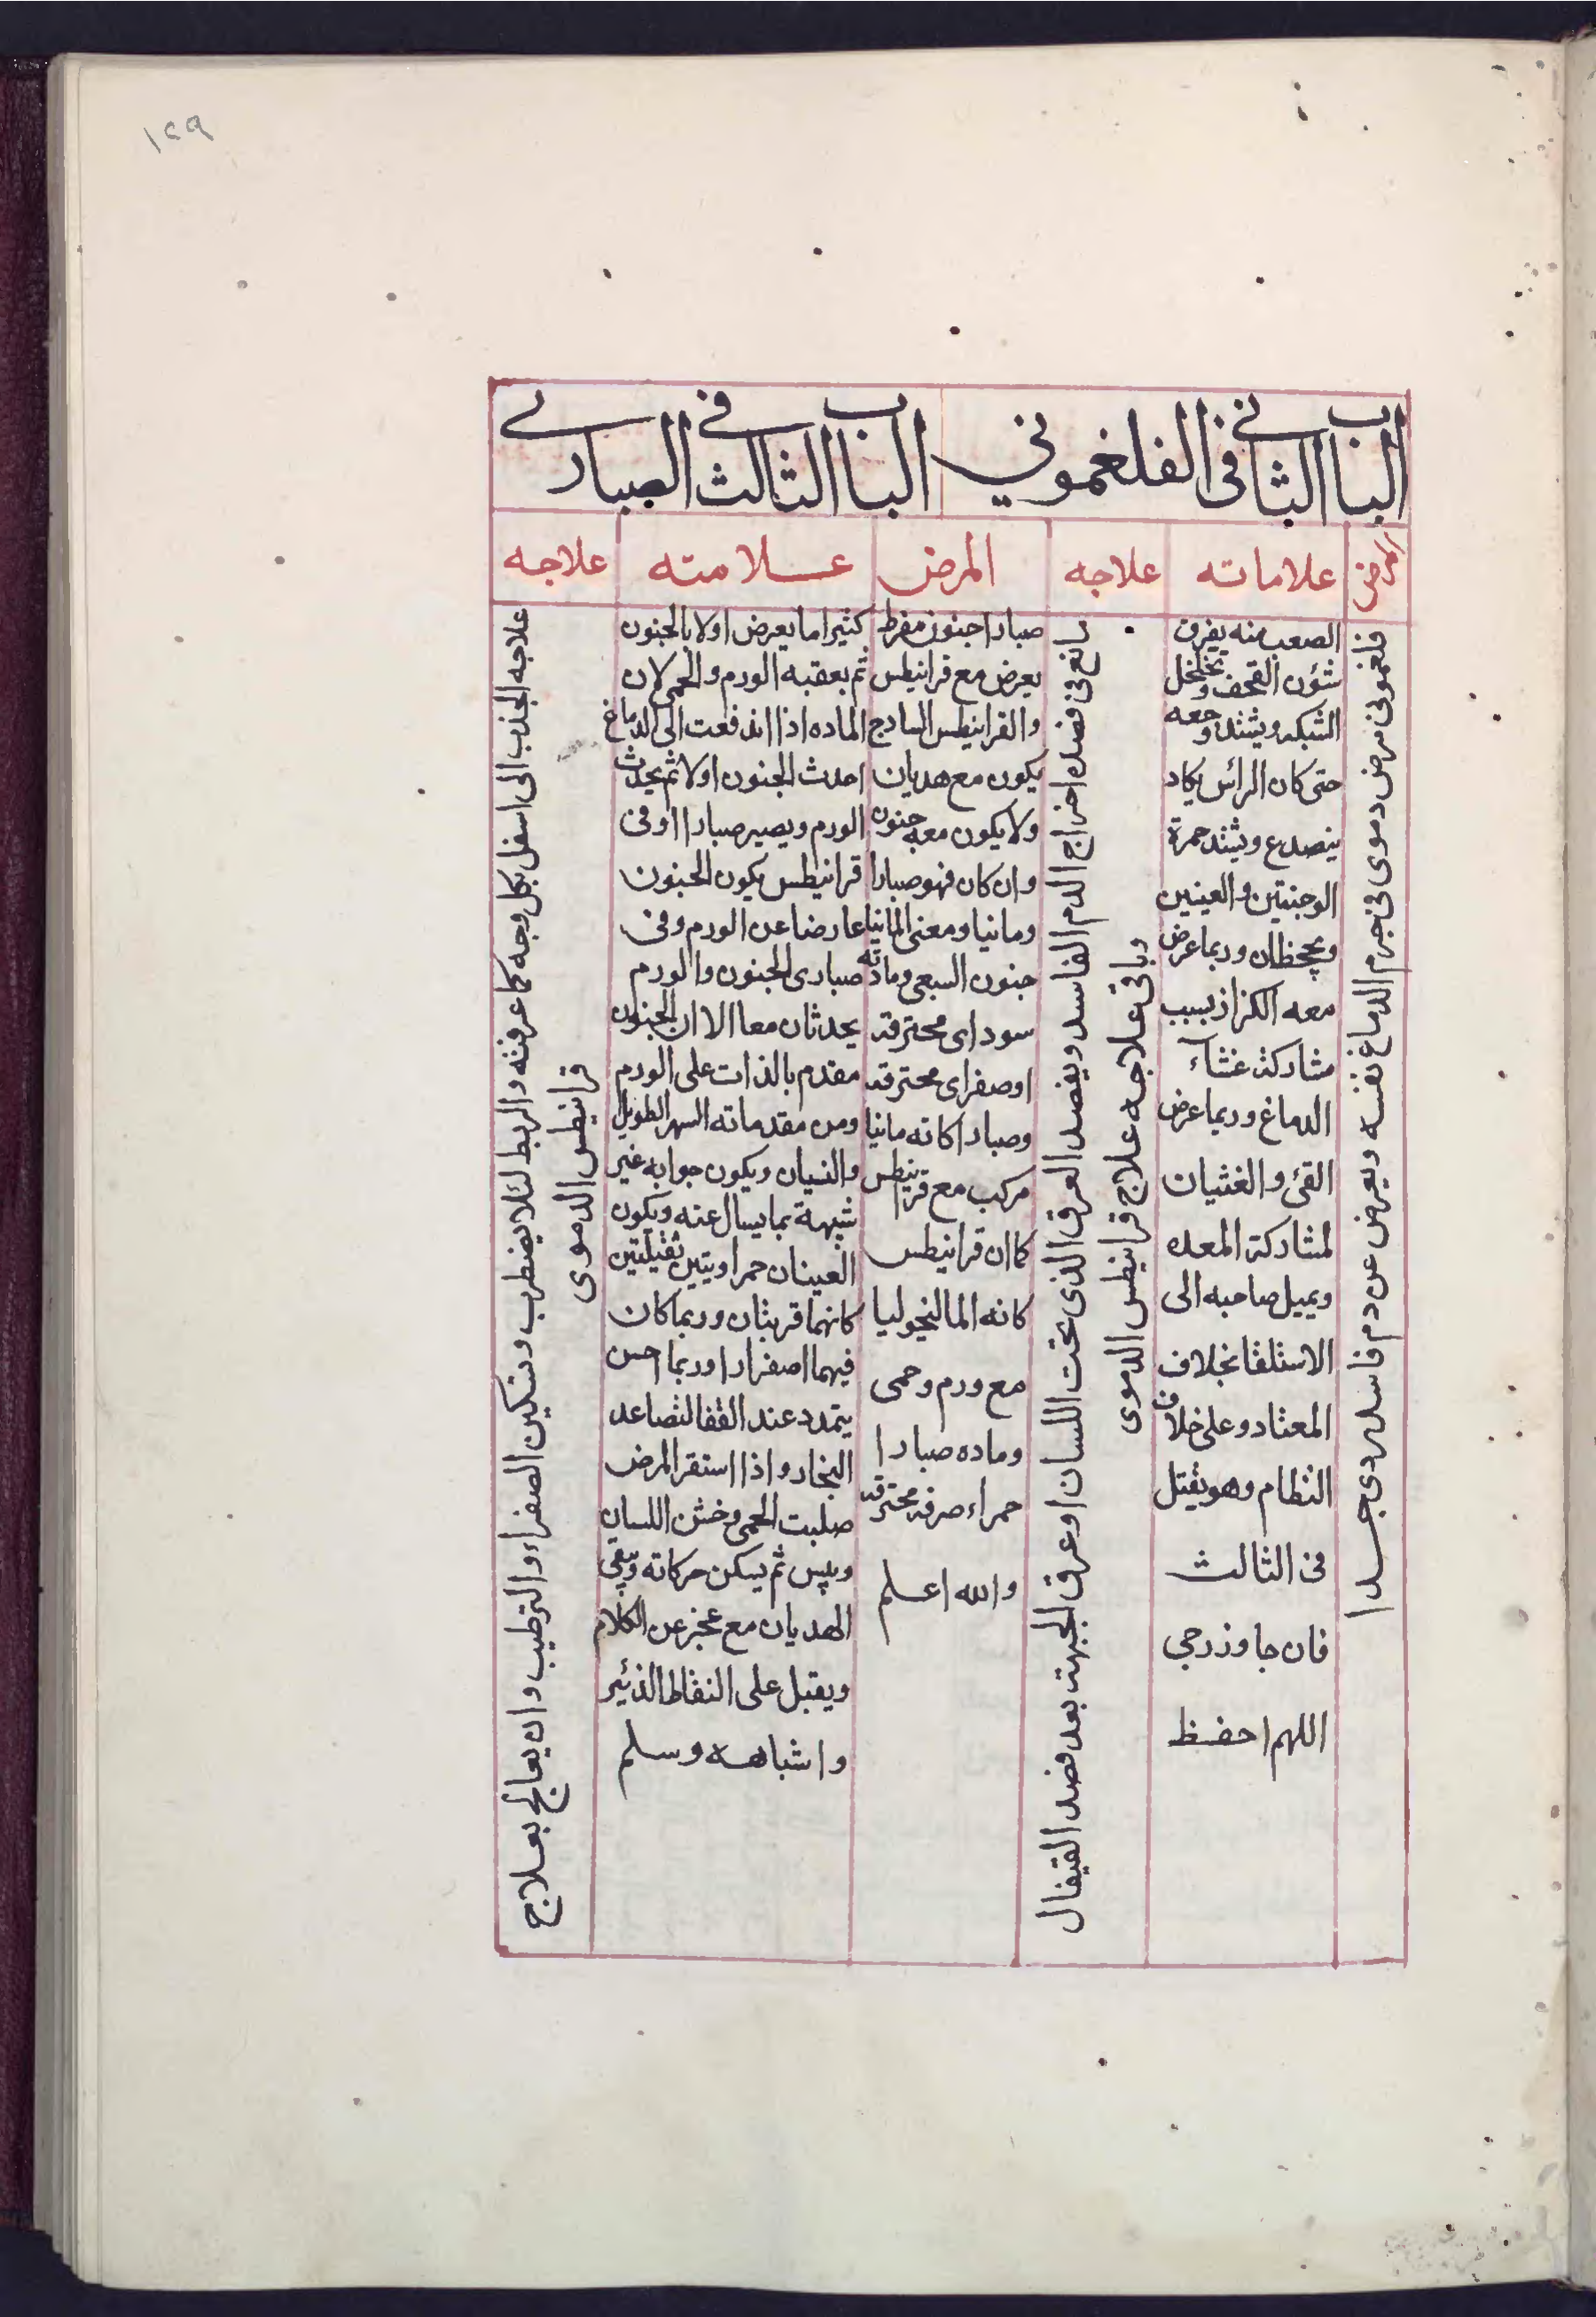 ١٢٩
الباب الثاني في الفلغموني
الباب الثالث في الصباري
المرض
علاماته
علاجه
المرض
عــلامته
علاجه
فلغموني مرض دموي في جرم الدماغ نفسه ويعرض عن دم فاسد ردي جــدا
الصعب منه يفرق
شؤن القحف ويخلخل
الشبكه ويشتد وجعه
حتى كان الرأس يكاد
ينصدع ويشتد حمرة
الوجنتين والعينين
ويجحظان وربما عرض
معه الكزاز بسبب
مشاركة غشاء
الدماغ وربما عرض
القئ والغثيان
لمشاركة المعده
ويميل صاحبه الى
الاستلقا بخلاف
المعتاد وعلى خلاف
النظام وهو يقتل
في الثالث
فان جاوز رجي
اللهم احفظ
بالغ في فصده اخراج الدم الفاسد ويفصد العرق الذي تحت اللسان او عرق الجبهة بعد فصد القيفال
وباقي علاجه علاج قرانيطس الدموي
صبارا جنون مفرط
يعرض مع قرانيطس
والقرانيطس الساذج
يكون مع هديان
ولا يكون معه جنون
وان كان فهو صبارا
ومانيا ومعنى المانيا
جنون السبعي ومادته
سوداى محترقه
اوصفراى محترقه
وصبارا كانه مانيا
مركب مع قرانيطس
كا ان قرانيطس
كانه المالنخوليا
مع ورم وحمى
وماده صبارا
حمراء صرفه محترقه
والله اعلم
كثيرا ما يعرض اولا بالجنون
ثم يعقبه الورم والحمى لان
الماده اذا اندفعت الى الدماغ
احدث الجنون اولا ثم يحدث
الورم ويصير صبارا اوفى
قرانيطس يكون الجنون
عارضا عن الورم وفي
صبارى الجنون والورم
يحدثان معا الا ان الجنون
مقدم بالذات على الورم
ومن مقدماته السهر الطويل
والنسيان ويكون جوابه غير
شبهة بما يسال عنه ويكون
العينان حمراويتين ثقيلتين
كانهما قربتان وربما كان
فيهما اصفرارا وربما احس
يتمدد عند القفا لتصاعد
البخار واذا استقر المرض
صلبت الحمى وخشن اللسان
ويبس ثم يسكن حركاته ويبقى
الهديان مع عجز عن الكلام
ويقبل على النقاط الذئير
واشباهــه وسلم
علاجه الجذب الى اسفل بكل وجه كما عرفته والربط لئلا يضطرب وتسكين الصفراء والترطيب وان يعالج بعــلاج
قرانيطس الدموى